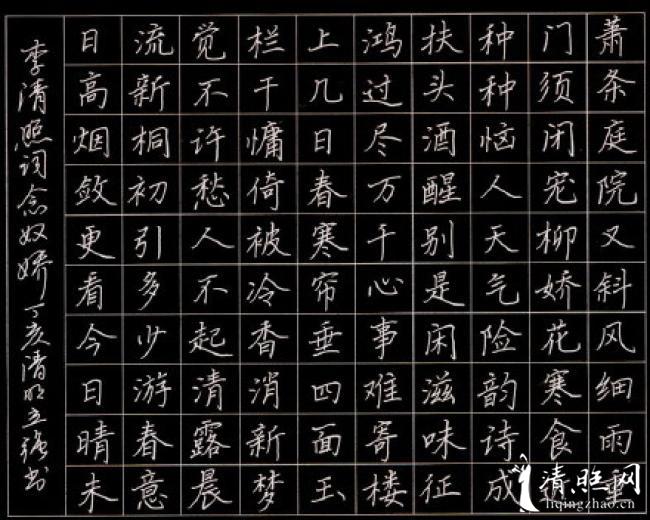 萧条庭院又斜风细雨重
门须闭宠柳娇花寒食近
种种恼人天气险韵诗成
扶头酒醒别是闲滋味征
鸿过尽万千心事难寄楼
上几日春寒帘垂四面玉
栏干慵倚被冷香消新梦
觉不许愁人不起清露晨
流新桐初引多少游春意
日高烟敛更看今日晴未
李清照词念奴娇 丁亥清明立强书
清照网
liqingzhao.cn